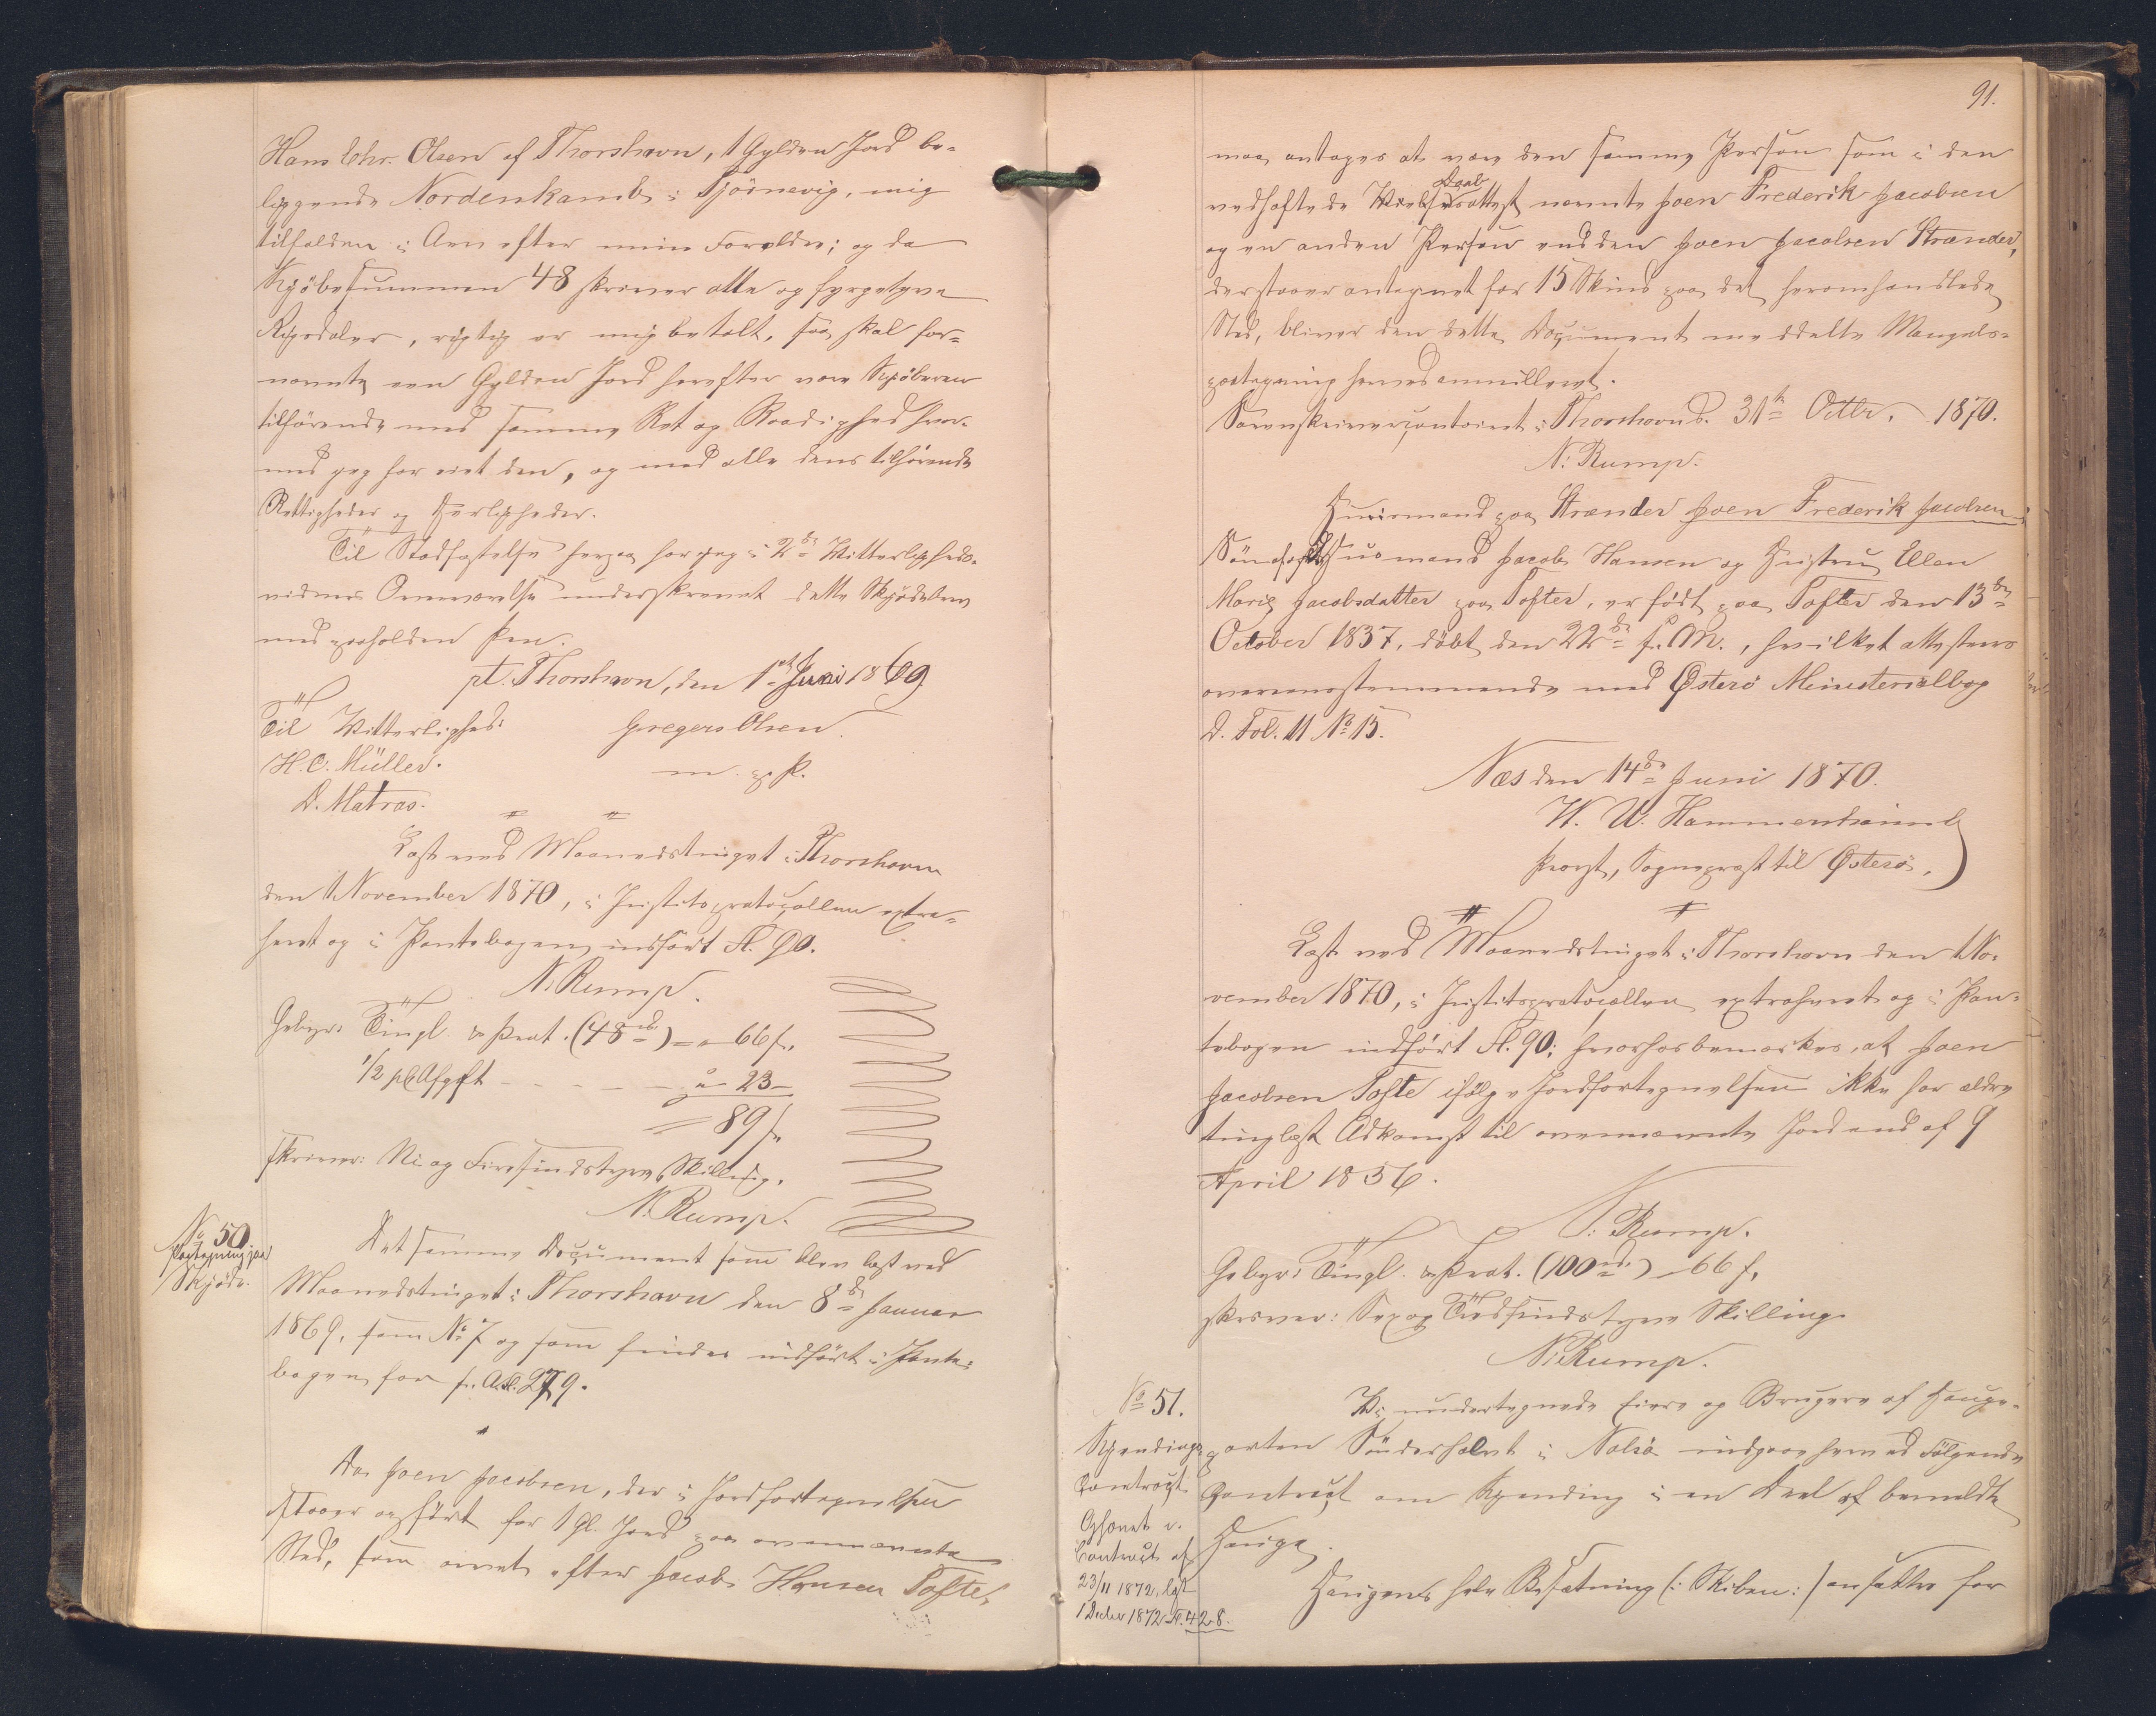 Hans Chr. Olsen af Thorshavn, 1 Gylden Jord be-
liggende Nordenkamb i Tjörnevig, mig
tilfalden i Arv efter mine Forældre; og da
Kjöbesummen 48 skriver otte og fyrgetyve
Rigsdaler, rigtig er mig betalt, saa skal for-
nævnte een Gylden Jord herefter være Kjöberen
tilhörende med samme Ret og Raadighed hvor-
med jeg har eiet den, og med alle dens tilhörende
Rettigheder og Herligheder.
Til Stadfæstelse herpaa har jeg i 2de Vitterligheds-
vidners Overværelse underskrevet dette Skjödebrev
med paaholden Pen.
pt. Thorshavn, den 1st Juni 1869
Til Vitterlighed: Gregers Olsen.
H. C. Müller. m. p. P.
D. Matras.
Læst ved Maanedstinget i Thorshavn
den 1 November 1870, i Justitsprotocollen extra-
heret og i Pantebogen indfört Fl. 90.
N. Rump.
Gebyr: Tingl. & Prot. (48 rd) = " 66 s.
1/2 pC Afgift - - - - - " - 23 -
= 89 s.
skriver: Ni og Firsindstyve Skilling.
N. Rump.
No 50
Paategning paa
Skjöde.
Det samme Document som blev læst ved
Maanedstinget i Thorshavn den 8de Januar
1869, som No 7 og som findes indfört i Pante-
bogen for s. A. Fl. 279.
Da Joen Jacobsen, der i Jordfortegnelsen
staaer opfört for 1 Gl. Jord paa ovennævnte
Sted, som arvet efter Jacob Hansen Tofte,
91.
maa antages at være den samme Person som i den
vedhæftede Daab attest nævnte Joen Frederik Jacobsen
og en anden Person end den Joen Jacobsen Strænder,
der staaer antegnet for 15 Skind paa det heromhandlede
Sted, bliver den dette Document meddelte Mangels-
paategning herved annulleret.
Sorenskrivercontoiret i Thorshavn d. 31te Octbr. 1870.
N. Rump.
Huusmand paa Strænder Joen Frederik Jacobsen
Sön af Huusmand Jacob Hansen og Hustru Ellen
Marie Jacobsdatter paa Tofter, er födt paa Tofter den 13de
October 1837, döbt den 22de s. M., hvilket attesteres
overensstemmende med Österö Ministerialbog
D. Fol. 11 No 15.
Næs den 14de Juni 1870.
V. U. Hammershaimb
Provst, Sognepræst til Österö.
Læst ved Maanedstinget i Thorshavn den 1 No-
vember 1870, i Justitsprotocollen extraheret og i Pan-
tebogen indfört Fl. 90; hvorhos bemærkes, at Joen
Jacobsen Tofte ifölge Jordfortegnelsen ikke har ældre
tinglæst Adkomst til ovennævnte Jord end af 9
April 1856.
N. Rump.
Gebyr: Tingl. & Prot. (100 rd) - 66 s.
skriver: Sex og Tredsindstyve Skilling.
N. Rump.
No 51.
Kjendings
Contract
Ophævet v.
Contract af
23/11 1872, læst
1 Decbr 1872 Fl. 428.
Vi undertegnede Eiere og Brugere af Hauge-
parten Sönderhalvt i Nolsö indgaae herved Fölgende
Contract om Kjending i en Deel af bemeldte
Hauge.
Haugens hele Besætning (: Skiben :) ansættes for